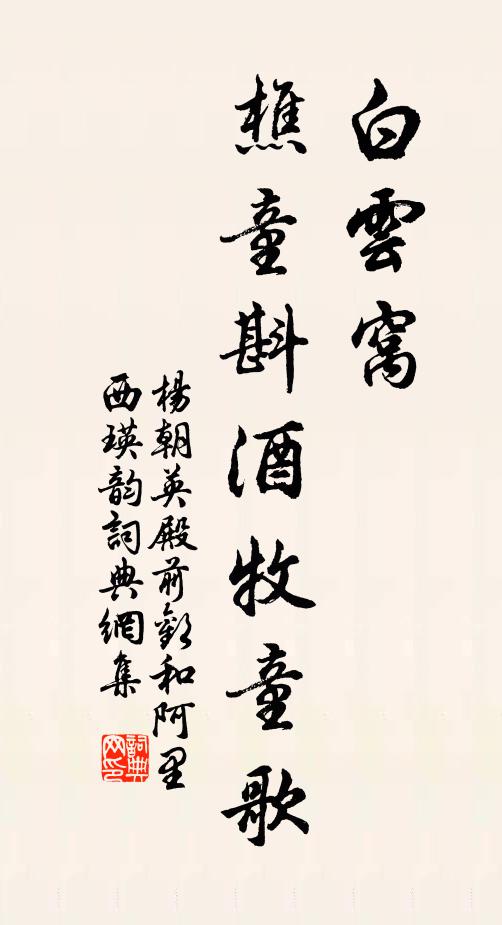 白雲窩
樵童斟酒牧童歌
楊朝英殿前歡和阿里
西瑛韵詞典網集
詞典網印